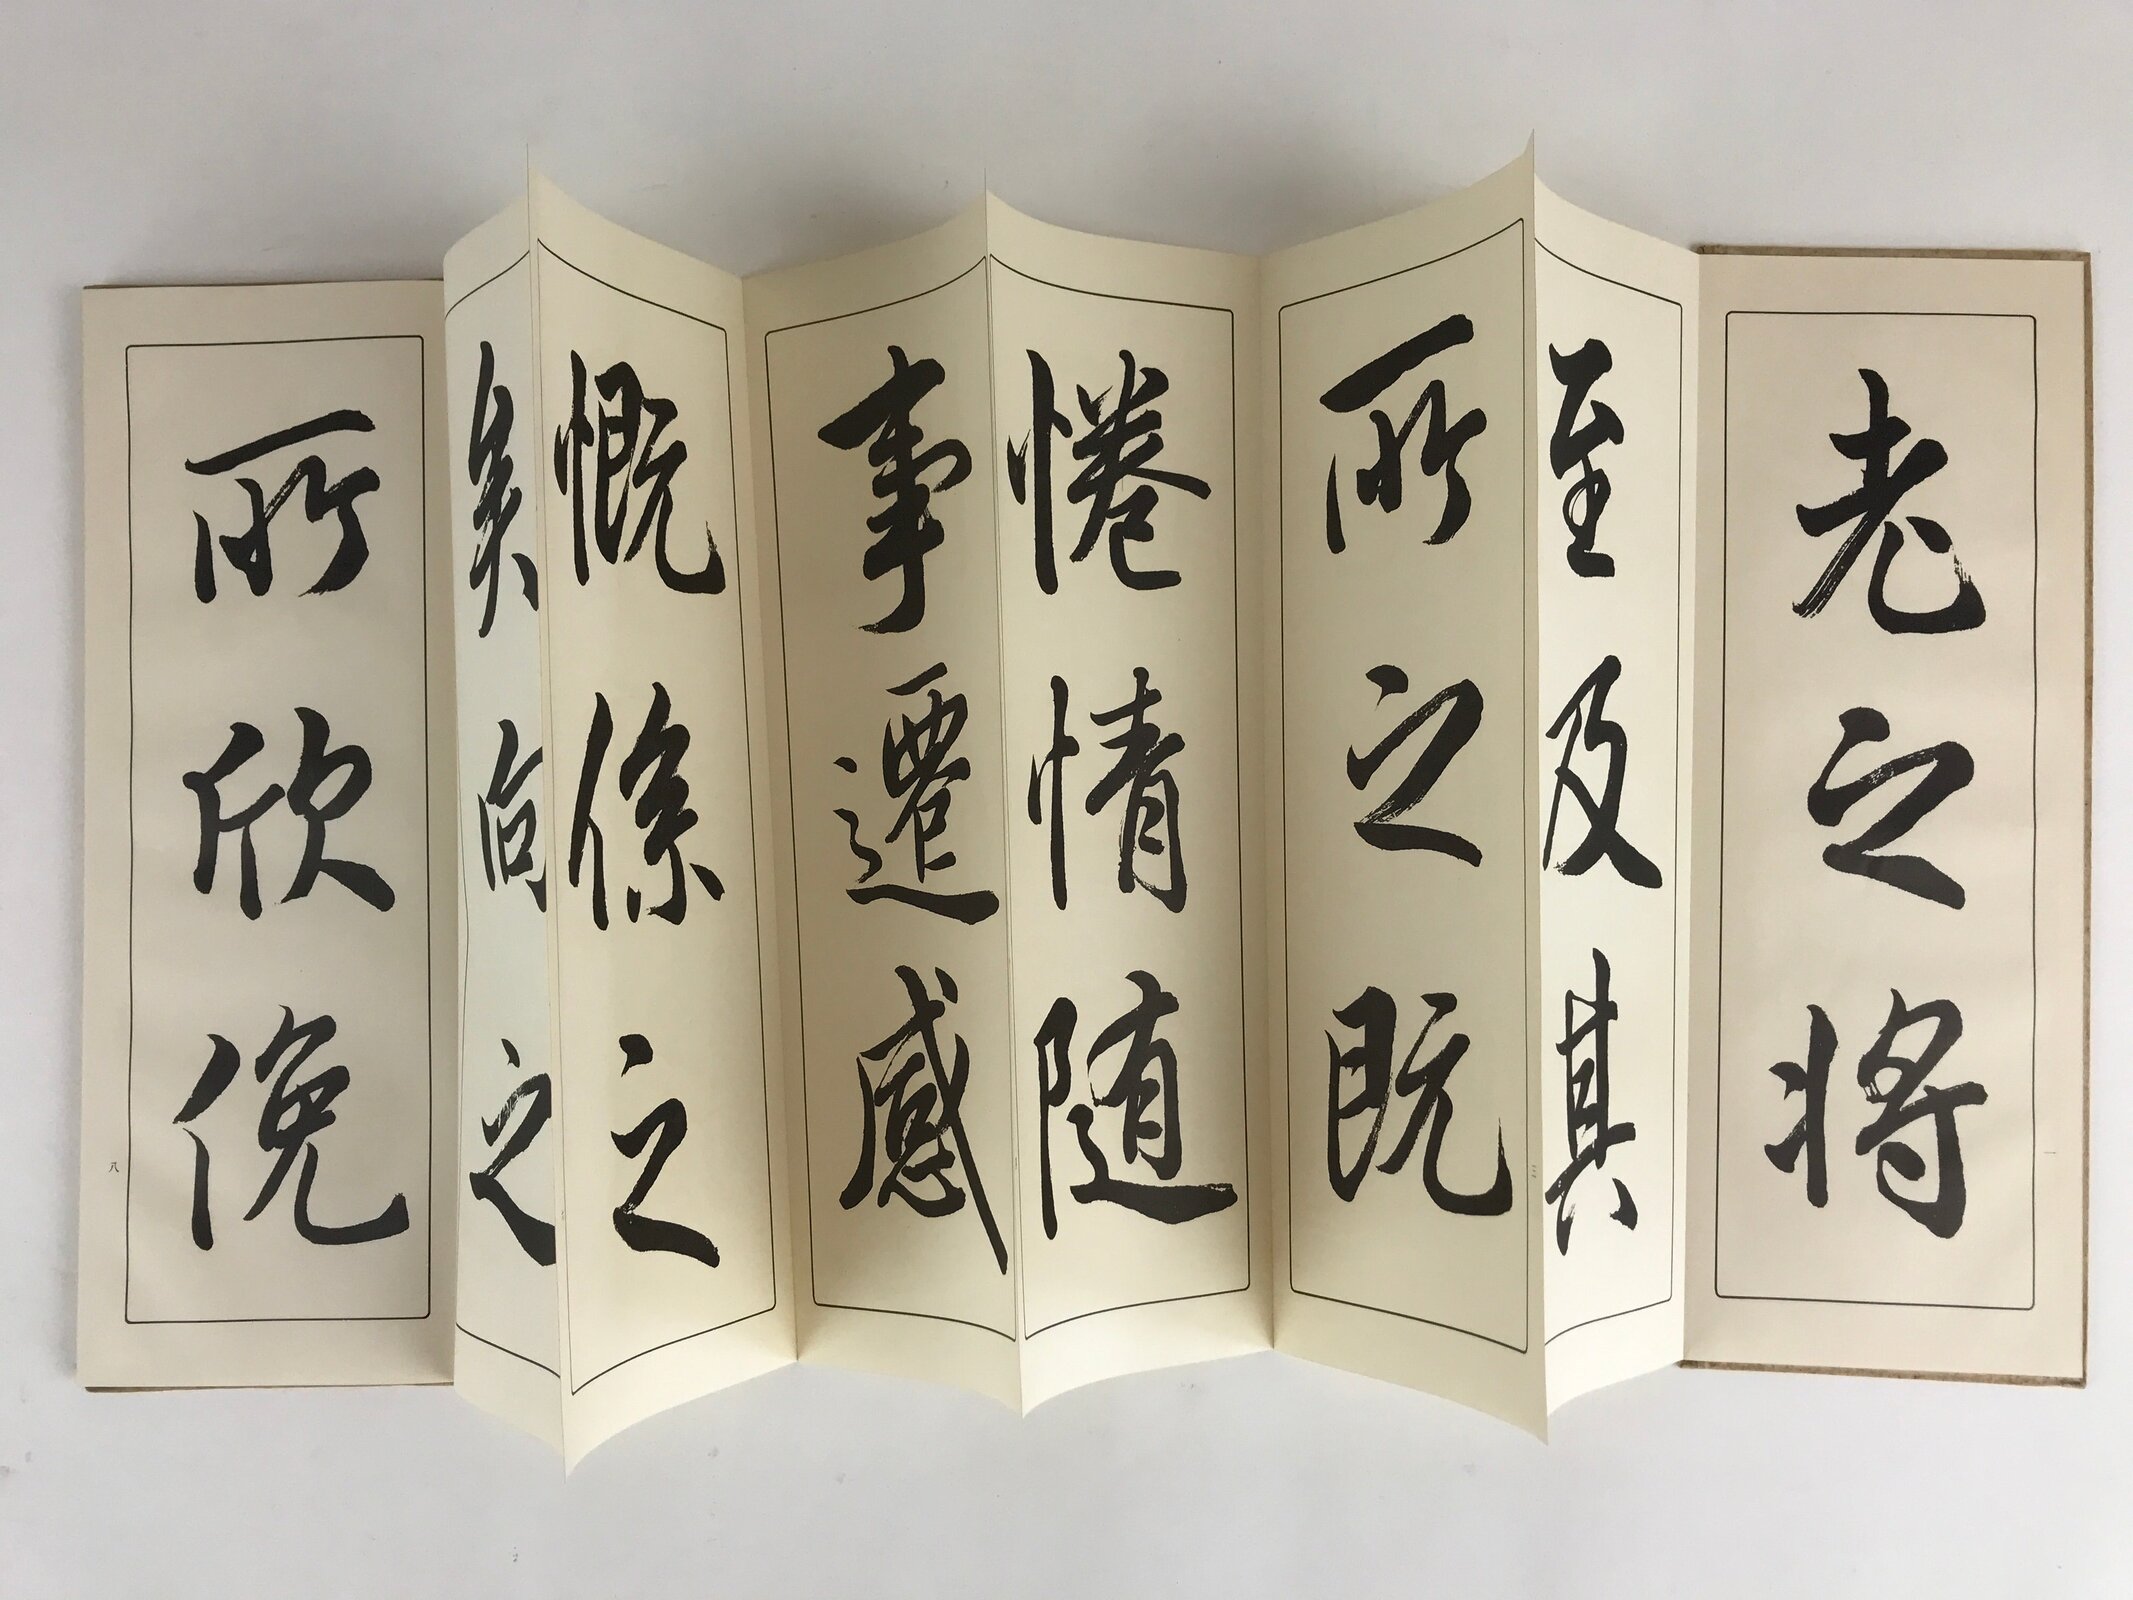 老之將
至及其
所之既
惓情随
事遷感
慨係之
矣向之
所欣俛
一
三
八